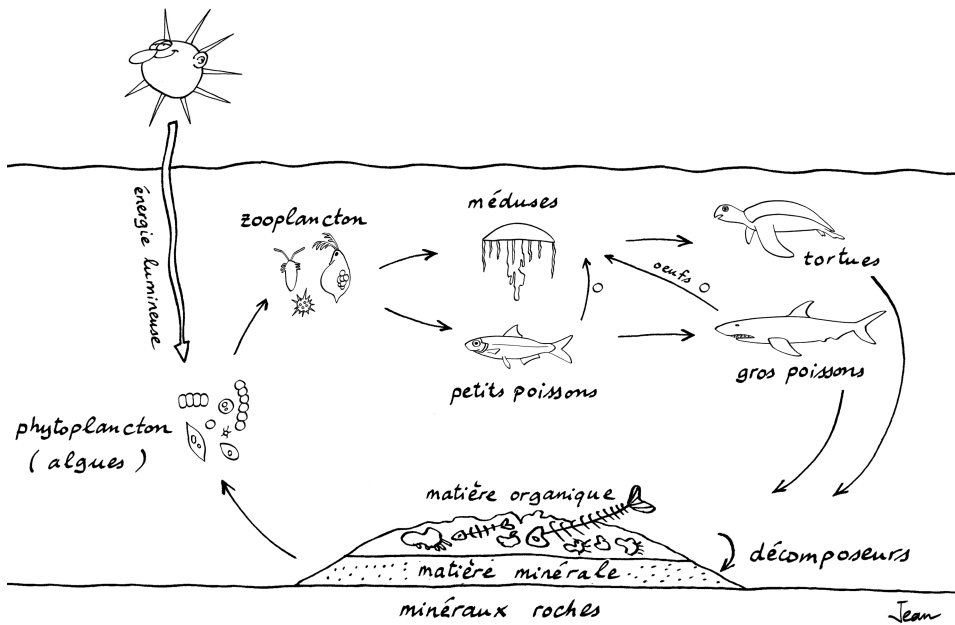 énergie lumineuse
zooplancton
méduses
tortues
oeufs
petits poissons
gros poissons
phytoplancton
(algues)
matière organique
décomposeurs
matière minérale
minéraux roches
Jean